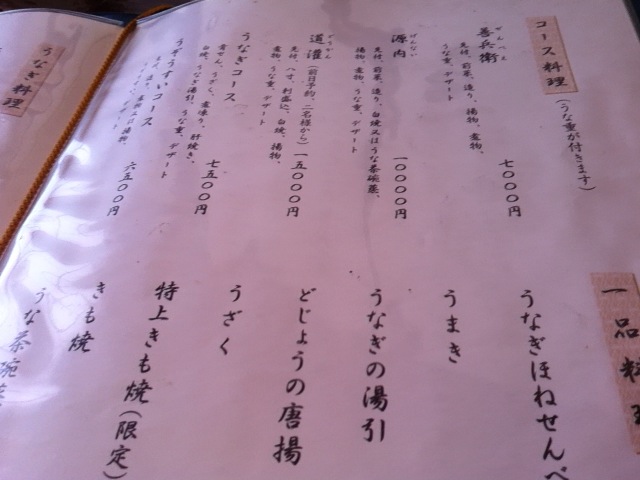 コース料理
(うな重が付きます)
ぜんべえ
善兵衛
先付、前菜、造り、揚物、煮物、
うな重、デザート
七〇〇〇円
げんない
源内
先付、前菜、造り、白焼又はうな茶碗蒸、
揚物、煮物、うな重、デザート
一〇〇〇〇円
どうかん
道灌(前日予約、二名様から)一五〇〇〇円
先付、八寸、利盛込、白焼、揚物、
煮物、うな重、デザート
うなぎコース
七五〇〇円
うな重、デザート
うぞうすいコース
六五〇〇円
一品料理
うなぎほねせんべ
うまき
うなぎの湯引
どじょうの唐揚
うざく
特上きも焼(限定)
きも焼
うな茶碗蒸
うなぎ料理